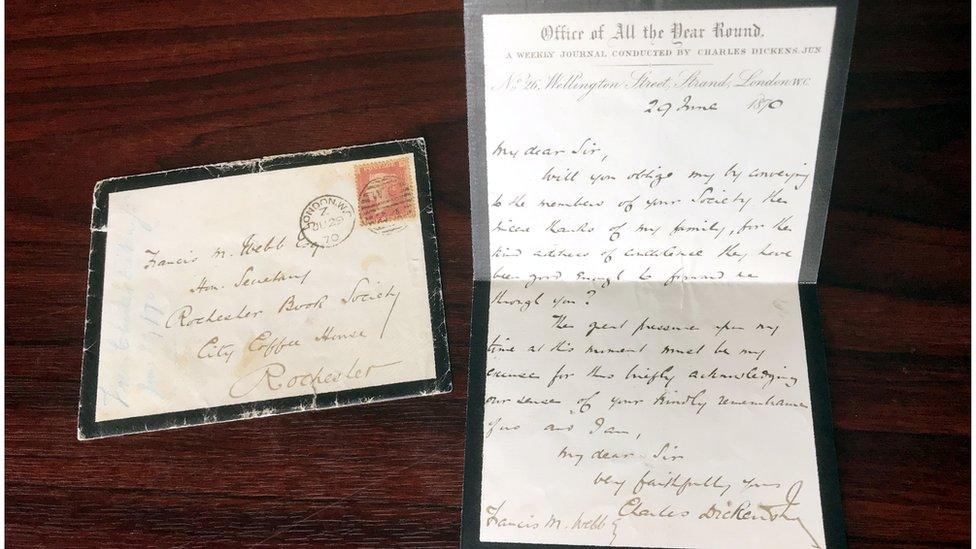 LONDON.W.C
Z
JU 29
70
Francis M. Webb Esq
Hon. Secretary
Rochester Book Society
City Coffee House
Rochester
Office of All the Year Round.
A WEEKLY JOURNAL CONDUCTED BY CHARLES DICKENS. JUN
No. 26, Wellington Street, Strand, London W.C.
29 June 1870
My dear Sir,
Will you oblige my by conveying
to the members of your Society the
sincere thanks of my family, for the
kind address of condolence they have
been good enough to forward me
through you?
The great pressure upon my
time at this moment must be my
excuse for thus briefly acknowledging
our sense of your kindly remembrance
of us and I am,
My dear Sir
Very faithfully yours
Charles Dickens Jr
Francis M. Webb Esq